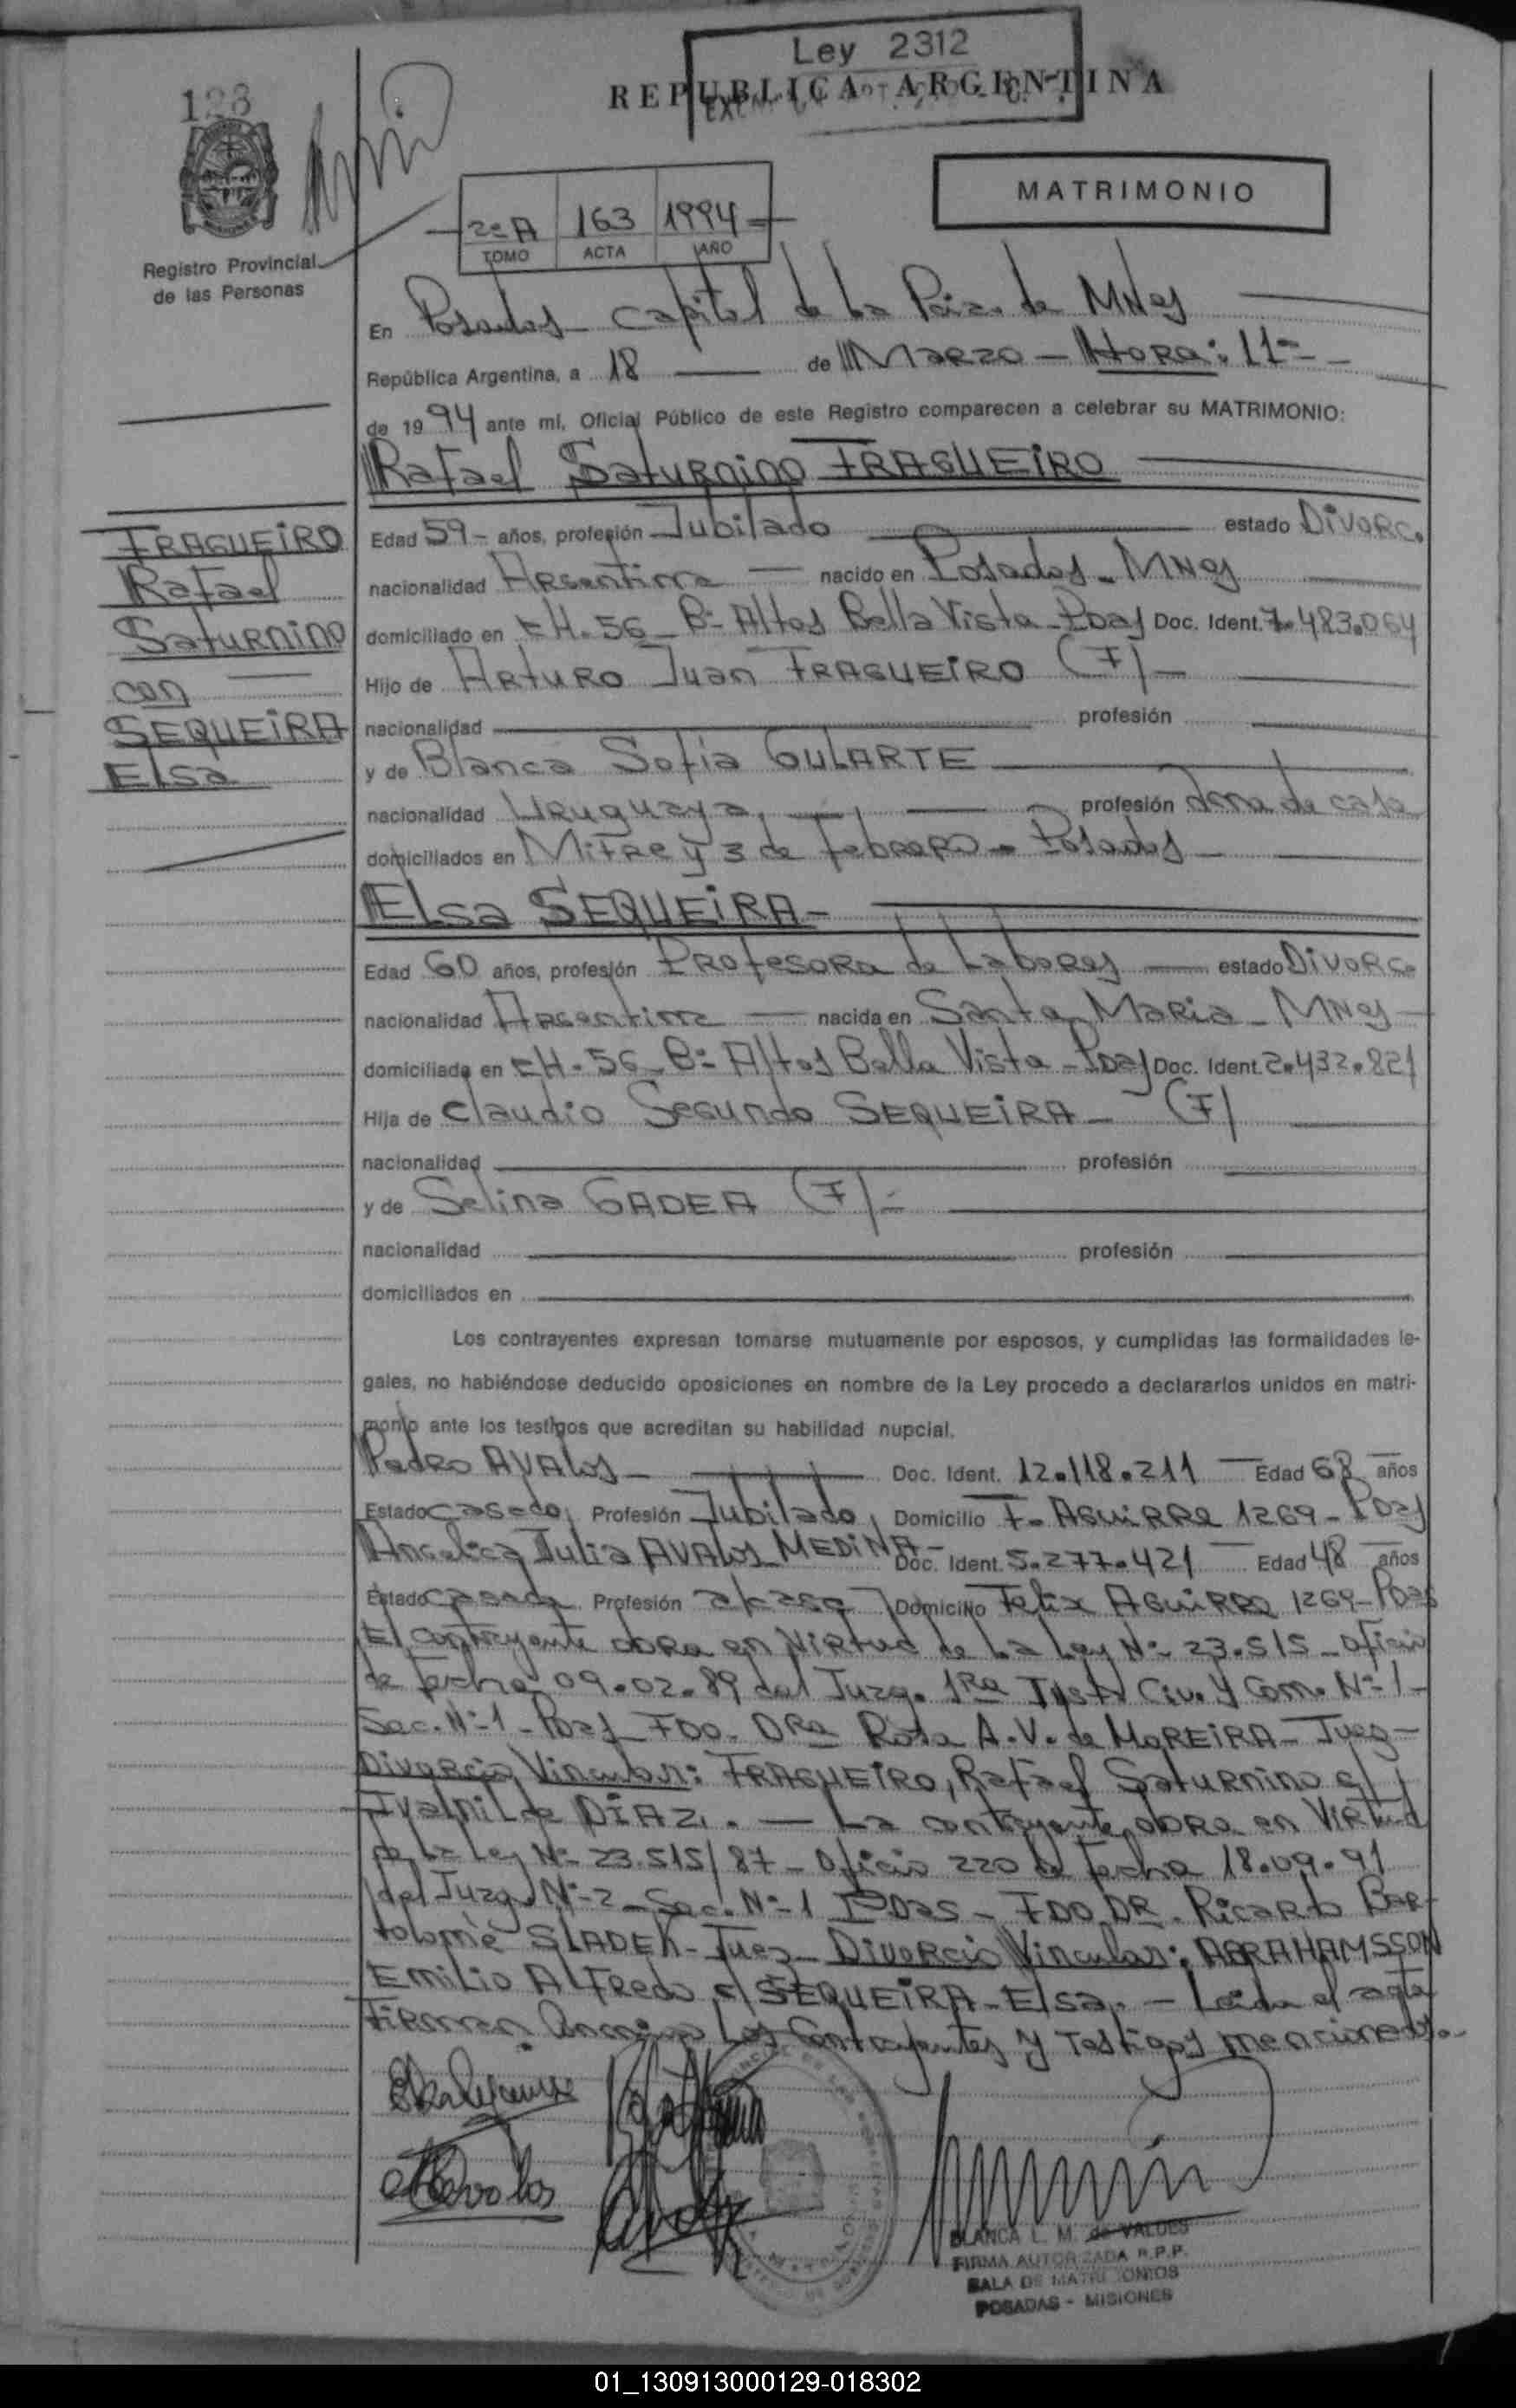 Ley 2312
REPUBLICA ARGENTINA
128
MATRIMONIO
2º A 163 1994
TOMO ACTA AÑO
Registro Provincial
de las Personas
En Posadas Capital de la Pcia. de Mnes
República Argentina, a 18 de Marzo - Hora: 11
de 1994 ante mí, Oficial Público de este Registro comparecen a celebrar su MATRIMONIO:
Rafael Saturnino FRAGUEIRO
FRAGUEIRO
Rafael
Saturnino
con
SEQUEIRA
Elsa
Edad 59 años, profesión Jubilado estado Divorc.
nacionalidad Argentina nacido en Posadas - Mnes
domiciliado en CH. 56 - Bº Altos Bella Vista - Pdas Doc. Ident. 7.483.064
Hijo de Arturo Juan FRAGUEIRO (F)
nacionalidad profesión
y de Blanca Sofia GULARTE
nacionalidad Uruguaya profesión ama de casa
domiciliados en Mitre y 3 de Febrero - Posadas
Elsa SEQUEIRA
Edad 60 años, profesión Profesora de Labores estado Divorc.
nacionalidad Argentina nacida en Santa Maria - Mnes
domiciliada en CH. 56 - Bº Altos Bella Vista - Pdas Doc. Ident. 2.432.821
Hija de Claudio Segundo SEQUEIRA - (F)
nacionalidad profesión
y de Selina GADEA (F)
nacionalidad profesión
domiciliados en
Los contrayentes expresan tomarse mutuamente por esposos, y cumplidas las formalidades le-
gales, no habiéndose deducido oposiciones en nombre de la Ley procedo a declararlos unidos en matri-
monio ante los testigos que acreditan su habilidad nupcial.
Pedro AVAlos Doc. Ident. 12.118.211 Edad 68 años
Estado casado, Profesión Jubilado, Domicilio F. Aguirre 1269 - Pdas
Angelica Julia AVAlos MEDINA Doc. Ident. 5.277.421 Edad 48 años
Estado casada Profesión Domicilio Felix Aguirre 1269 - Pdas
El contrayente obra en Virtud de la Ley Nº 23.515 - Oficio
de fecha 09.02.89 del Juzg. 1ra Inst. Civ. y Com. Nº 1
Sec. Nº 1 - Pdas FDO. DRa Rosa A.V. de MOREIRA - Juez -
Divorcio Vincular: FRAGUEIRO, Rafael Saturnino c/
DIAZ. - La contrayente obra en Virtud
de la Ley Nº 23.515/87 - Oficio 220 de fecha 18.09.91
del Juzg. Nº 2 - Sec. Nº 1 Pdas - FDO. DR. Ricardo Bar-
tolomé SLADEK - Juez - Divorcio Vincular: ABRAHAMSSON
Emilio Alfredo c/ SEQUEIRA - Elsa. - Leida el acta
Firman conmigo los Contrayentes y Testigos mencionados.
BLANCA L. M. de VALDES
FIRMA AUTORIZADA R.P.P.
SALA DE MATRIMONIOS
POSADAS - MISIONES
01_130913000129-018302